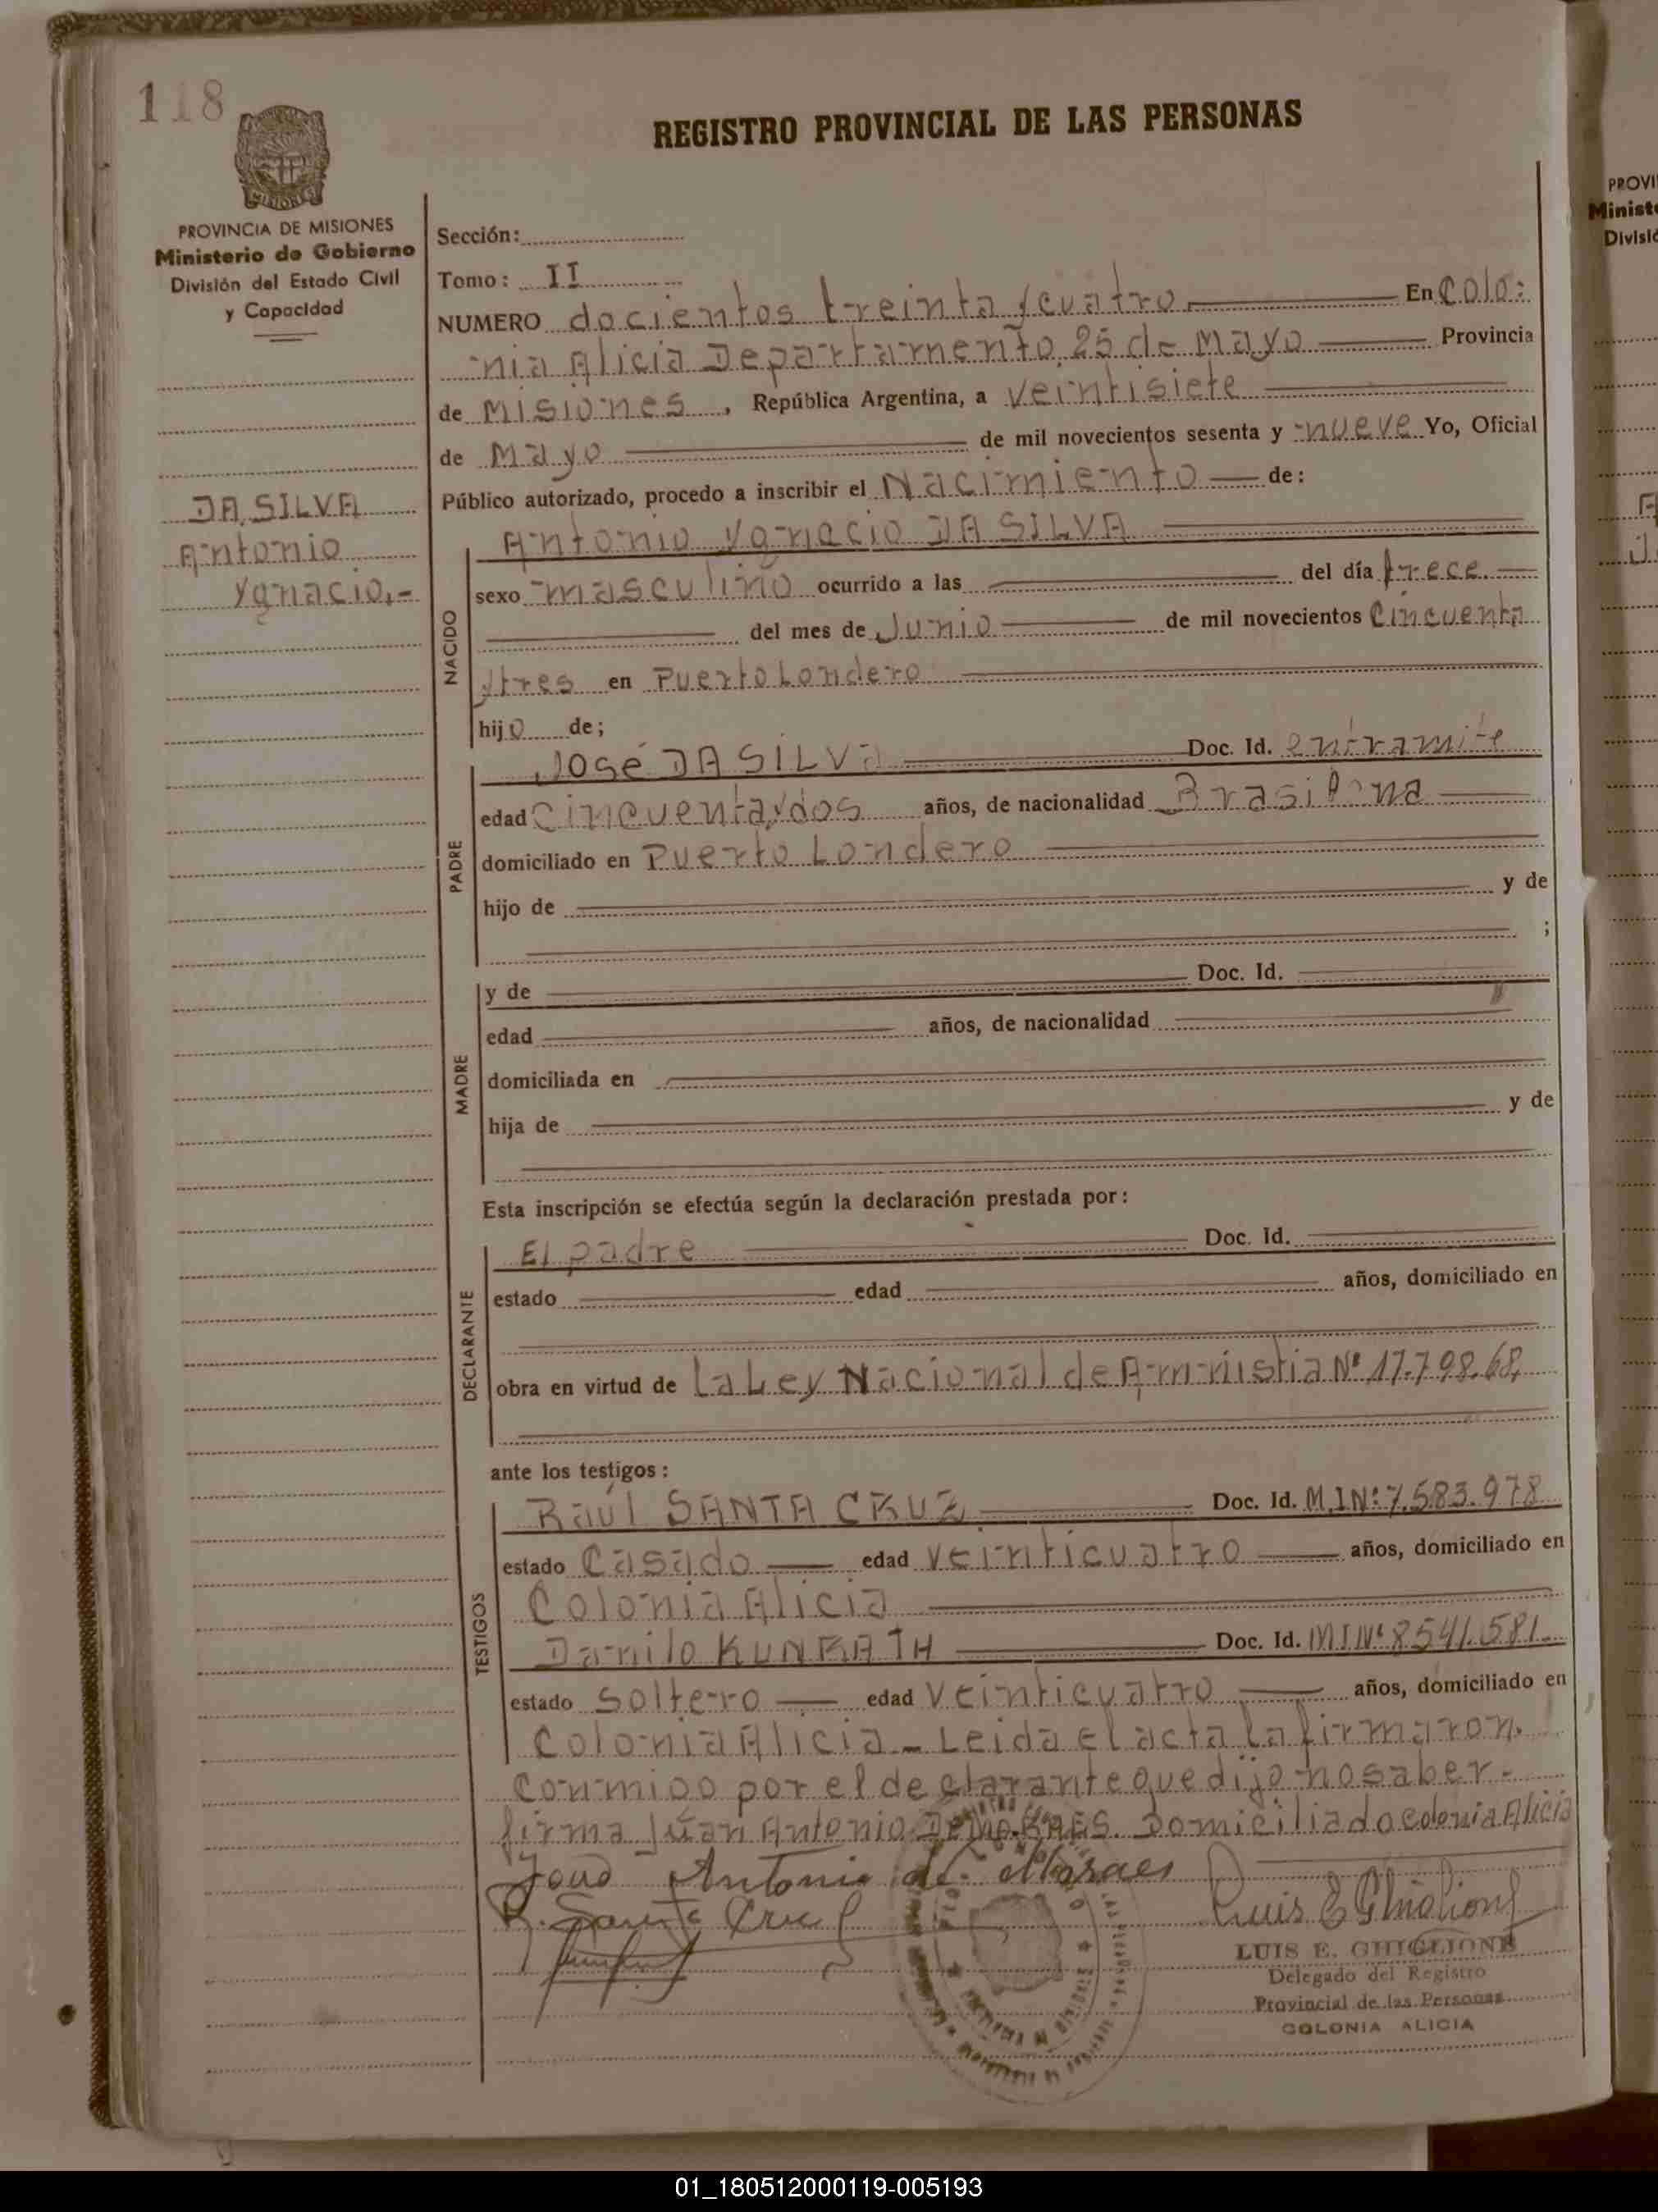 118
REGISTRO PROVINCIAL DE LAS PERSONAS
MISIONES
PROVINCIA DE MISIONES
Ministerio de Gobierno
División del Estado Civil
y Capacidad
DA SILVA
Antonio
Ygnacio.-
Sección:
Tomo: II
NUMERO docientos treinta y cuatro En Colo=
nia Alicia Departamento 25 de Mayo Provincia
de Misiones, República Argentina, a veintisiete
de Mayo de mil novecientos sesenta y nueve Yo, Oficial
Público autorizado, procedo a inscribir el Nacimiento de:
NACIDO
Antonio Ygnacio DA SILVA
sexo masculino ocurrido a las del día trece.
del mes de Junio de mil novecientos Cincuenta
y tres en Puerto Londero
hijo de;
PADRE
José DA SILVA Doc. Id. en tramite
edad Cincuenta y dos años, de nacionalidad Brasilena
domiciliado en Puerto Londero
hijo de y de
;
MADRE
y de Doc. Id.
edad años, de nacionalidad
domiciliada en
hija de y de
Esta inscripción se efectúa según la declaración prestada por:
DECLARANTE
El padre Doc. Id.
estado edad años, domiciliado en
obra en virtud de la Ley Nacional de Amnistia Nº 17.798.68,
ante los testigos:
TESTIGOS
Raúl SANTA CRUZ Doc. Id. M.I.Nº 7.583.978
estado Casado edad veinticuatro años, domiciliado en
Colonia Alicia
Danilo KUNRATH Doc. Id. M.I.Nº 8541.581
estado soltero edad veinticuatro años, domiciliado en
Colonia Alicia - Leida el acta la firmaron.
Conmigo por el declarante que dijo no saber-
firma Juan Antonio DE MORAES. Domiciliado colonia Alicia
Antonio de Moraes
R. Santa Cruz
Luis E Ghiglione
LUIS E. GHIGLIONE
Delegado del Registro
Provincial de las Personas
COLONIA ALICIA
PROVI
Ministe
Divisió
01_180512000119-005193